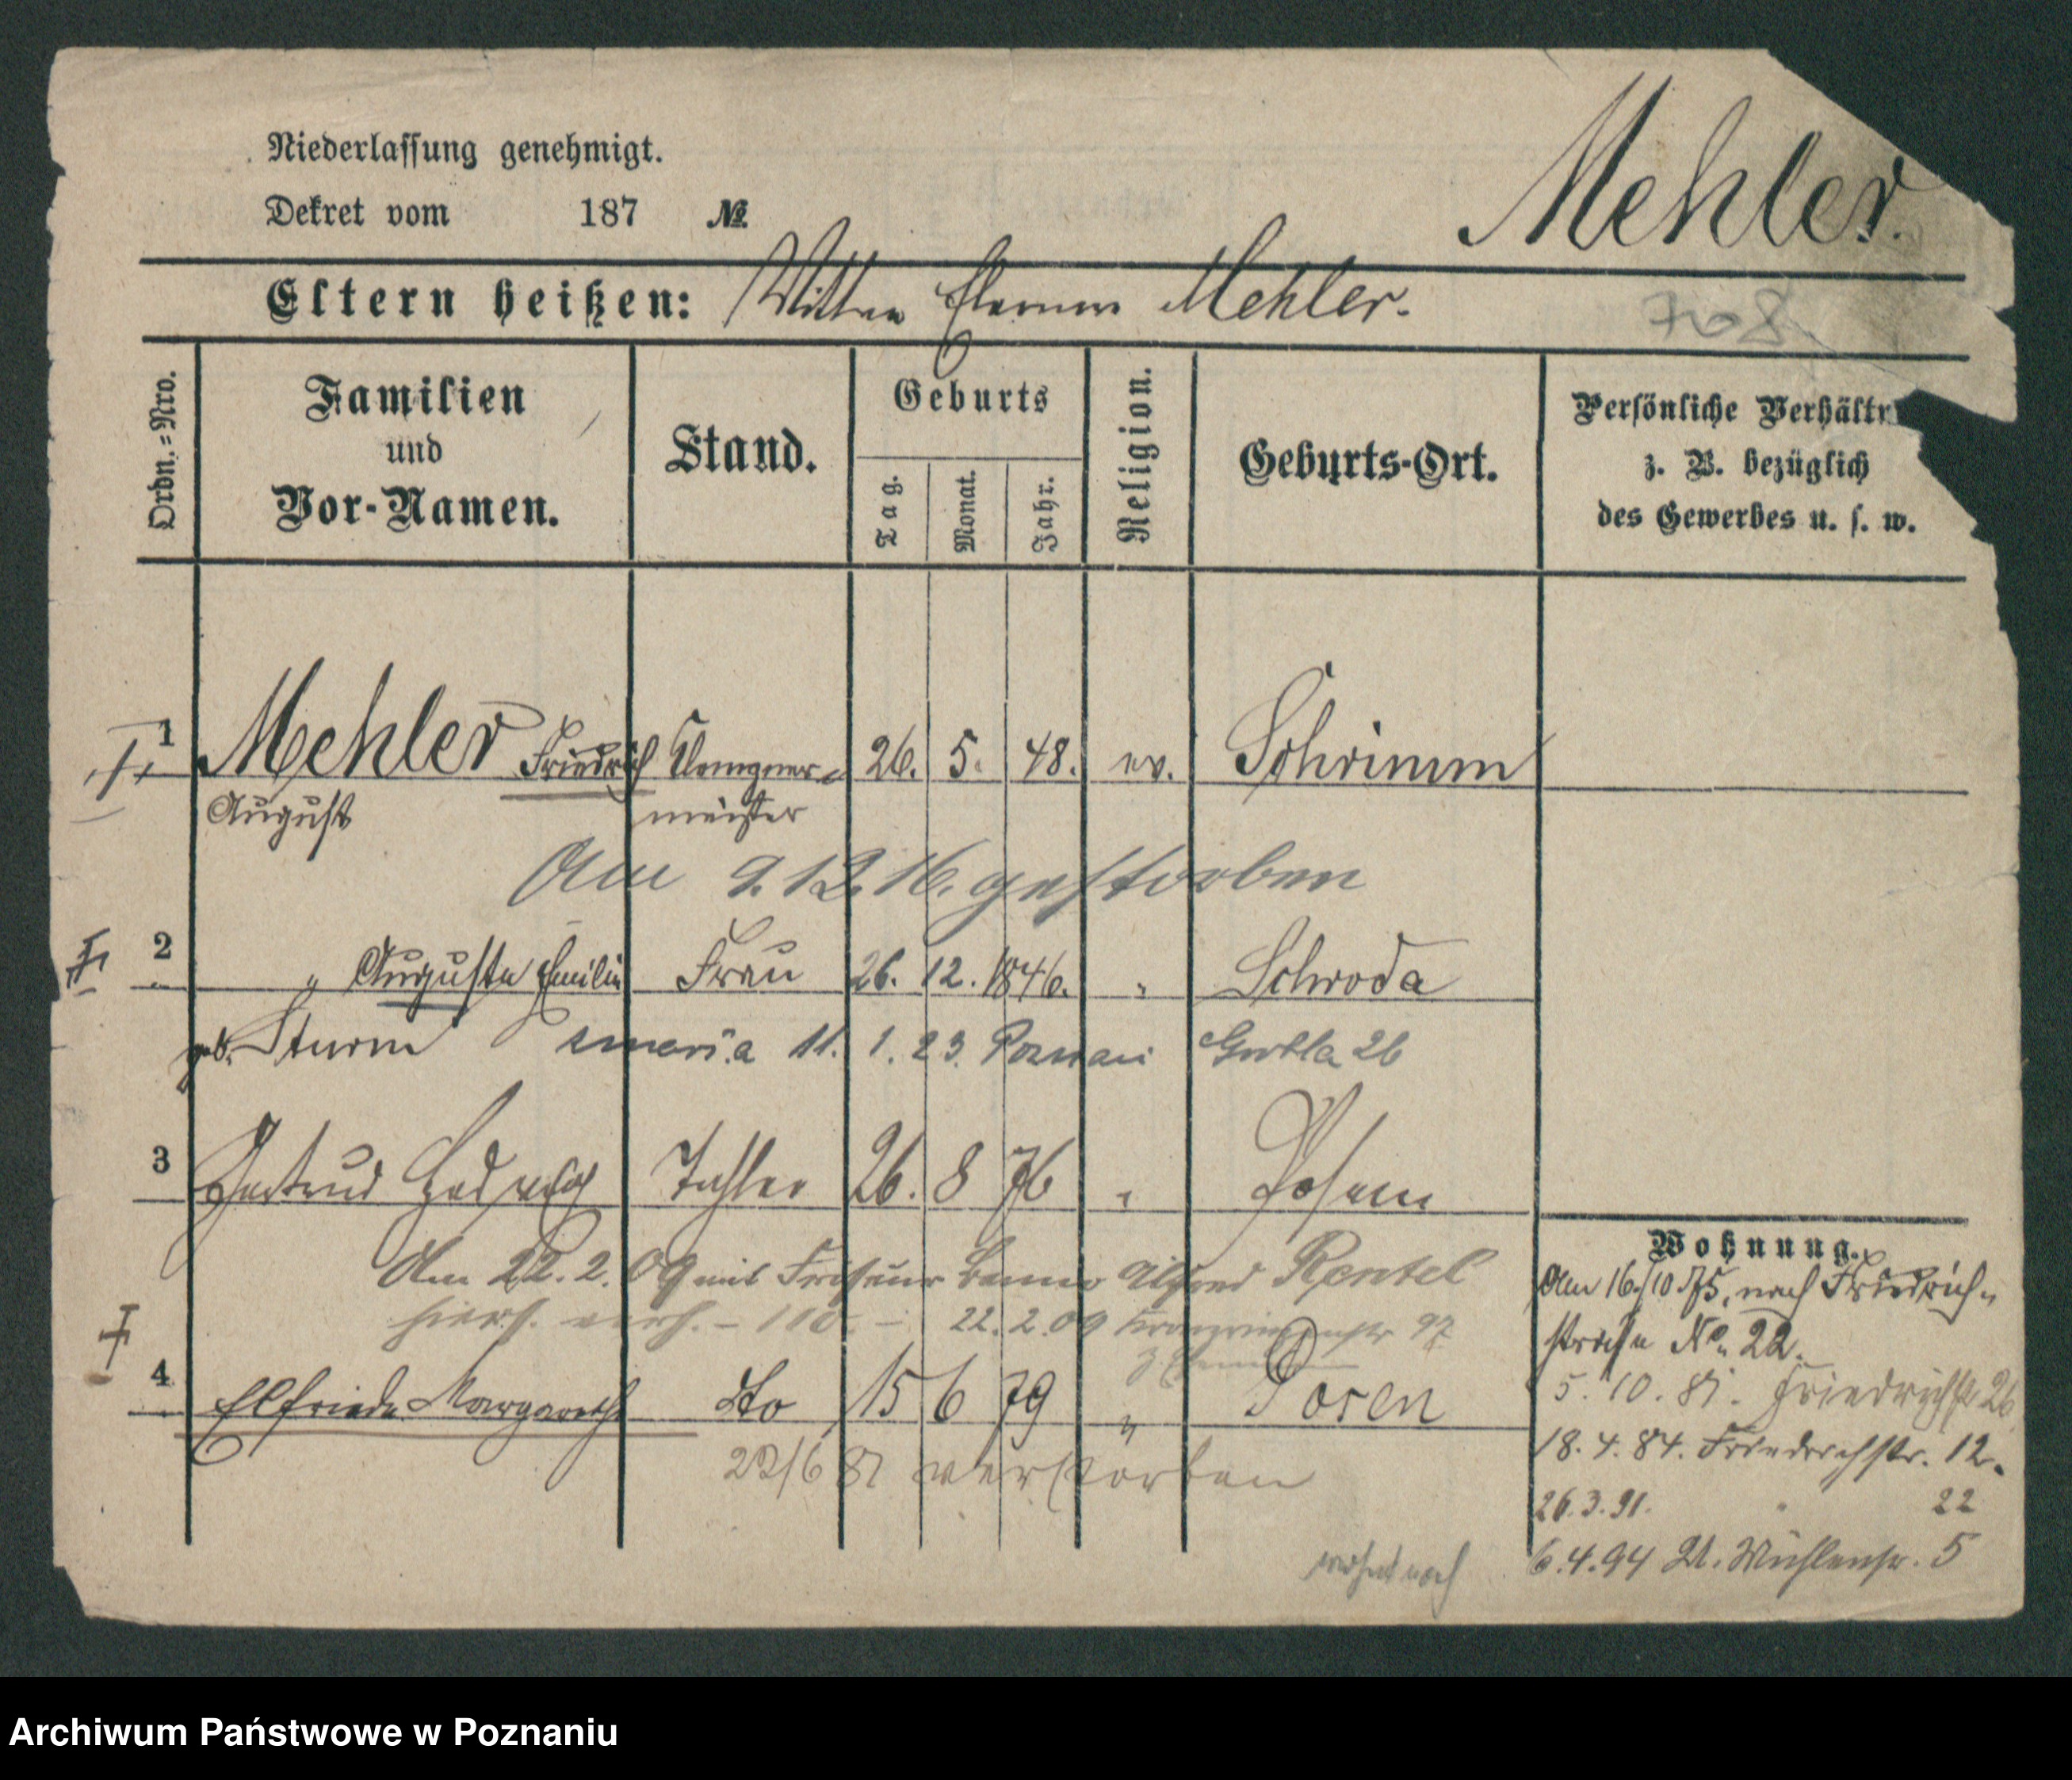 Mehler.
Niederlassung genehmigt.
Dekret vom 187 №
Eltern heißen: Mehler.
Ordn.=Nro.
Familien
und
Vor-Namen.
Stand.
Geburts
Tag.
Monat.
Jahr.
Religion.
Geburts-Ort.
Persönliche Verhält
z. B. bezüglich
des Gewerbes u. s. w.
1 Mehler Friedrich 26. 5. 48. ev. Schrimm
August meister
Am 9.12.16. gestorben
2 " Auguste Emilie Frau 26. 12. 1846. " Schroda
geb. Sturm zmarła 11. 1. 23. Poznań Grobla 26
3 Gertrud Hedwig Tochter 26. 8 76 " Posen
Am 22.2.09 mit Friseur Benno Alfred Rentel
22.2.09 97
4 Elfriede Margarethe dto 15 6 79 " Posen
22/6 81 verstorben
Wohnung.
Am 16/10 75, nach Friedrich-
straße No. 22.
5. 10. 81. Friedrichstr 26
18. 4. 84. Friedrichstr. 12.
26.3.91. " 22
6.4.94 Mühlenstr. 5
Archiwum Państwowe w Poznaniu